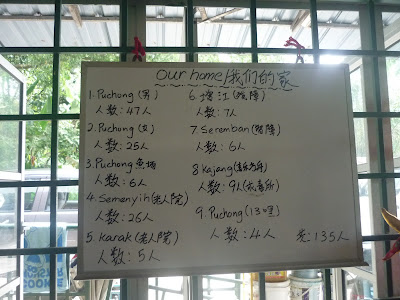 our home/我们的家
1. Puchong (男)
人数: 47人
2. Puchong (女)
人数: 25人
3. Puchong 鱼塘
人数: 6人
4. Semenyih (老人院)
人数: 26人
5. Karak (老人院)
人数: 5人
6 (残障)
人数: 7人
7. Seremban (残障)
人数: 6人
8 Kajang
人数: 9人
9. Puchong (13哩)
人数: 4人
共: 135人